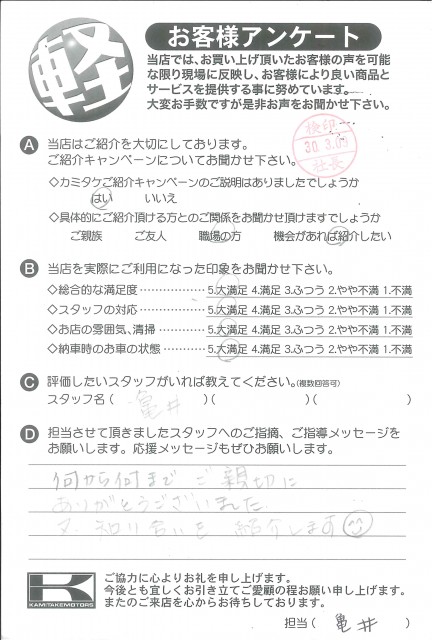 軽
お客様アンケート
当店では、お買い上げ頂いたお客様の声を可能
な限り現場に反映し、お客様により良い商品と
サービスを提供する事に努めています。
大変お手数ですが是非お声をお聞かせ下さい。
検印
30.3.09
社長
A 当店はご紹介を大切にしております。
ご紹介キャンペーンについてお聞かせ下さい。
◇カミタケご紹介キャンペーンのご説明はありましたでしょうか
はい いいえ
◇具体的にご紹介頂ける方とのご関係をお聞かせ頂けますでしょうか
ご親族 ご友人 職場の方 機会があれば紹介したい
B 当店を実際にご利用になった印象をお聞かせ下さい。
◇総合的な満足度 ……………… 5.大満足 4.満足 3.ふつう 2.やや不満 1.不満
◇スタッフの対応 ……………… 5.大満足 4.満足 3.ふつう 2.やや不満 1.不満
◇お店の雰囲気、清掃 ………… 5.大満足 4.満足 3.ふつう 2.やや不満 1.不満
◇納車時のお車の状態 ………… 5.大満足 4.満足 3.ふつう 2.やや不満 1.不満
C 評価したいスタッフがいれば教えてください。(複数回答可)
スタッフ名( 亀井 )( )( )
D 担当させて頂きましたスタッフへのご指摘、ご指導メッセージを
お願いします。応援メッセージもぜひお願いします。
何から何まで ご親切に
ありがとうございました。
又、知り合いを 紹介します
K
KAMITAKEMOTORS
ご協力に心よりお礼を申し上げます。
今後とも宜しくお引き立てご愛顧の程お願い申し上げます。
またのご来店を心からお待ちしております。
担当( 亀井 )